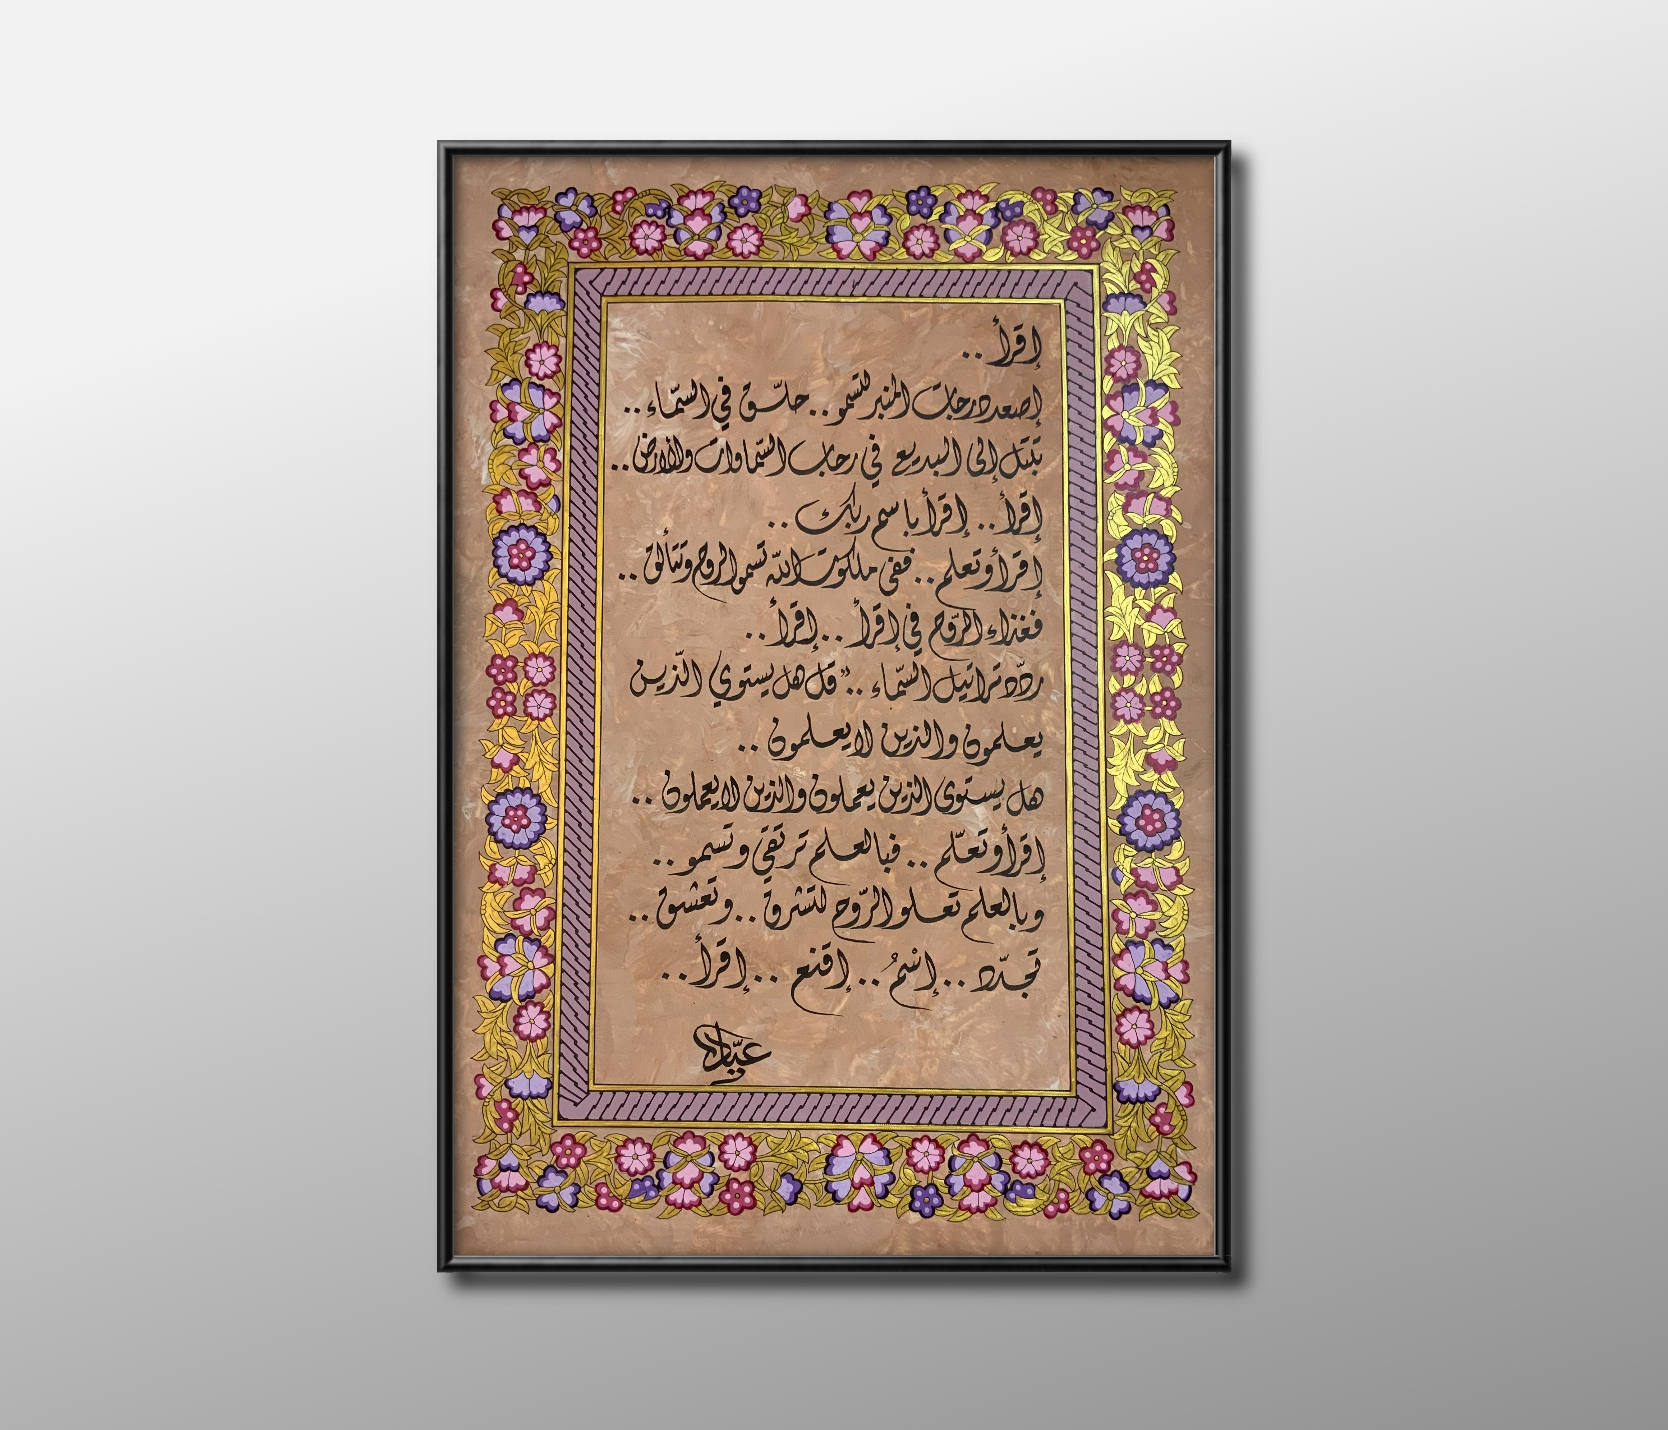 إقرأ ..
إصعد درجات المنبر لتسمو .. حلّق في السّماء ..
تبتل إلى البديع في رحاب السّماوات والأرض ..
إقرأ .. إقرأ باسم ربك ..
إقرأ وتعلم .. ففي ملكوت الله تسمو الروح وتتألق ..
فغذاء الرّوح في إقرأ .. إقرأ ..
ردّد تراتيل السّماء .. "قل هل يستوي الّذين
يعلمون والذين لا يعلمون ..
هل يستوي الذين يعملون والذين لا يعملون ..
إقرأ وتعلّم .. فبالعلم ترتقي وتسمو ..
وبالعلم تعلو الرّوح لتشرق .. وتعشق ..
تجدّد .. إسْمُ .. إقنع .. إقرأ ..